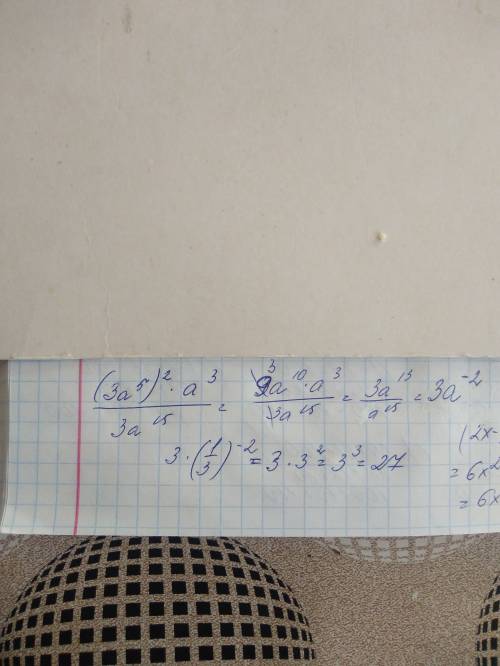 (3a⁵)²·a³/3a¹⁵ = 9³a¹⁰·a³/3a¹⁵ = 3a¹³/a¹⁵ = 3a⁻²
3·(1/3)⁻² = 3·3² = 3³ = 27
(2x-
= 6x²
= 6x